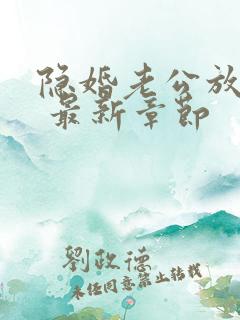 隐婚老公放
最新章节
劉政德
未经同意禁止转载